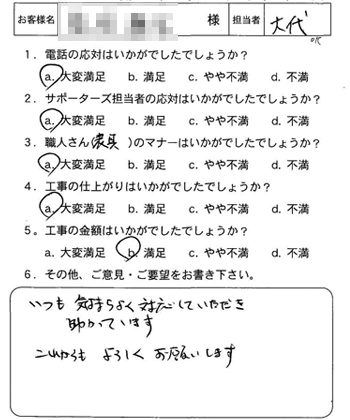 お客様名 様 担当者 大代
OK
1．電話の応対はいかがでしたでしょうか？
a. 大変満足 b. 満足 c. やや不満 d. 不満
2．サポーターズ担当者の応対はいかがでしたでしょうか？
a. 大変満足 b. 満足 c. やや不満 d. 不満
3．職人さん(家具 )のマナーはいかがでしたでしょうか？
a. 大変満足 b. 満足 c. やや不満 d. 不満
4．工事の仕上がりはいかがでしたでしょうか？
a. 大変満足 b. 満足 c. やや不満 d. 不満
5．工事の金額はいかがでしたでしょうか？
a. 大変満足 b. 満足 c. やや不満 d. 不満
6．その他、ご意見・ご要望をお書き下さい。
いつも 気持ちよく 対応していただき
助かっています
これからも よろしく お願いします